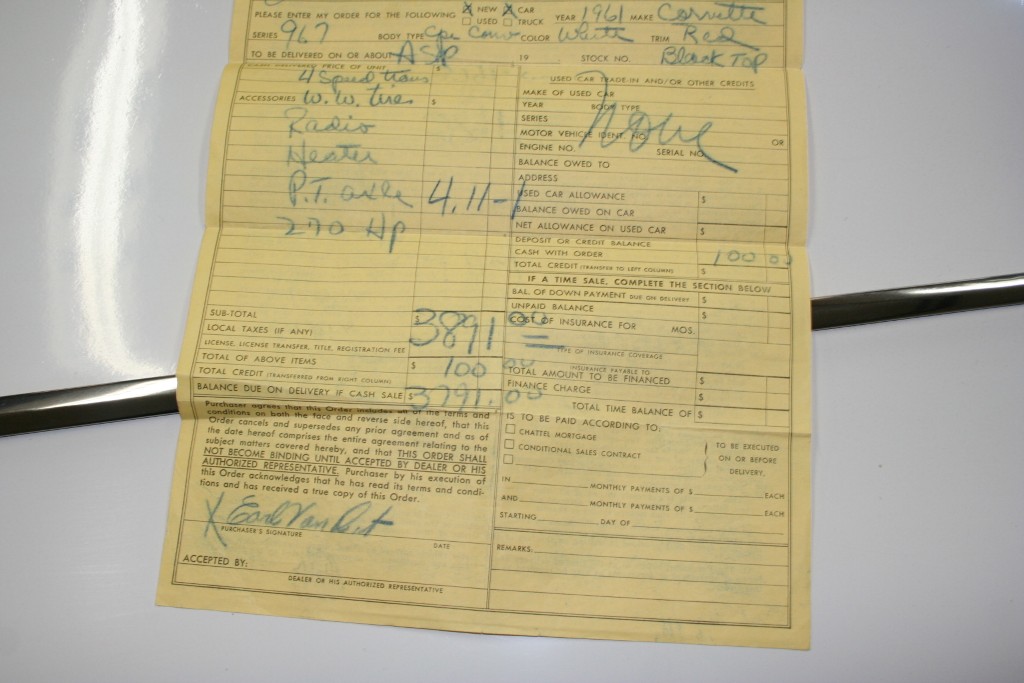 PLEASE ENTER MY ORDER FOR THE FOLLOWING X NEW X CAR YEAR 1961 MAKE Corvette
USED TRUCK
SERIES 967 BODY TYPE Cpe Conv COLOR White TRIM Red
TO BE DELIVERED ON OR ABOUT ASAP 19 STOCK NO. Black Top
DELIVERED PRICE OF UNIT
4 Speed trans $
ACCESSORIES W.W. tires $
Radio
Heater
P.T. axle 4.11-1
270 Hp
SUB-TOTAL
LOCAL TAXES (IF ANY) 3891 00
LICENSE, LICENSE TRANSFER, TITLE, REGISTRATION FEE
TOTAL OF ABOVE ITEMS $ 100 00
TOTAL CREDIT (TRANSFERRED FROM RIGHT COLUMN)
BALANCE DUE ON DELIVERY IF CASH SALE $ 3791.00
Purchaser agrees that this Order includes all of the terms and
conditions on both the face and reverse side hereof, that this
Order cancels and supersedes any prior agreement and as of
the date hereof comprises the entire agreement relating to the
subject matters covered hereby, and that THIS ORDER SHALL
NOT BECOME BINDING UNTIL ACCEPTED BY DEALER OR HIS
AUTHORIZED REPRESENTATIVE. Purchaser by his execution of
this Order acknowledges that he has read its terms and condi-
tions and has received a true copy of this Order.
X Earl Van
PURCHASER'S SIGNATURE DATE
ACCEPTED BY:
DEALER OR HIS AUTHORIZED REPRESENTATIVE
USED CAR TRADE-IN AND/OR OTHER CREDITS
MAKE OF USED CAR
YEAR BODY TYPE
SERIES None
MOTOR VEHICLE IDENT. NO. OR
ENGINE NO. SERIAL NO.
BALANCE OWED TO
ADDRESS
USED CAR ALLOWANCE $
BALANCE OWED ON CAR
NET ALLOWANCE ON USED CAR $
DEPOSIT OR CREDIT BALANCE
CASH WITH ORDER 100 00
TOTAL CREDIT (TRANSFER TO LEFT COLUMN) $
IF A TIME SALE, COMPLETE THE SECTION BELOW
BAL. OF DOWN PAYMENT DUE ON DELIVERY $
UNPAID BALANCE $
COST OF INSURANCE FOR MOS.
TYPE OF INSURANCE COVERAGE
INSURANCE PAYABLE TO
TOTAL AMOUNT TO BE FINANCED $
FINANCE CHARGE $
TOTAL TIME BALANCE OF $
IS TO BE PAID ACCORDING TO:
CHATTEL MORTGAGE TO BE EXECUTED
CONDITIONAL SALES CONTRACT ON OR BEFORE
DELIVERY,
IN MONTHLY PAYMENTS OF $ EACH
AND MONTHLY PAYMENTS OF $ EACH
STARTING DAY OF
REMARKS: